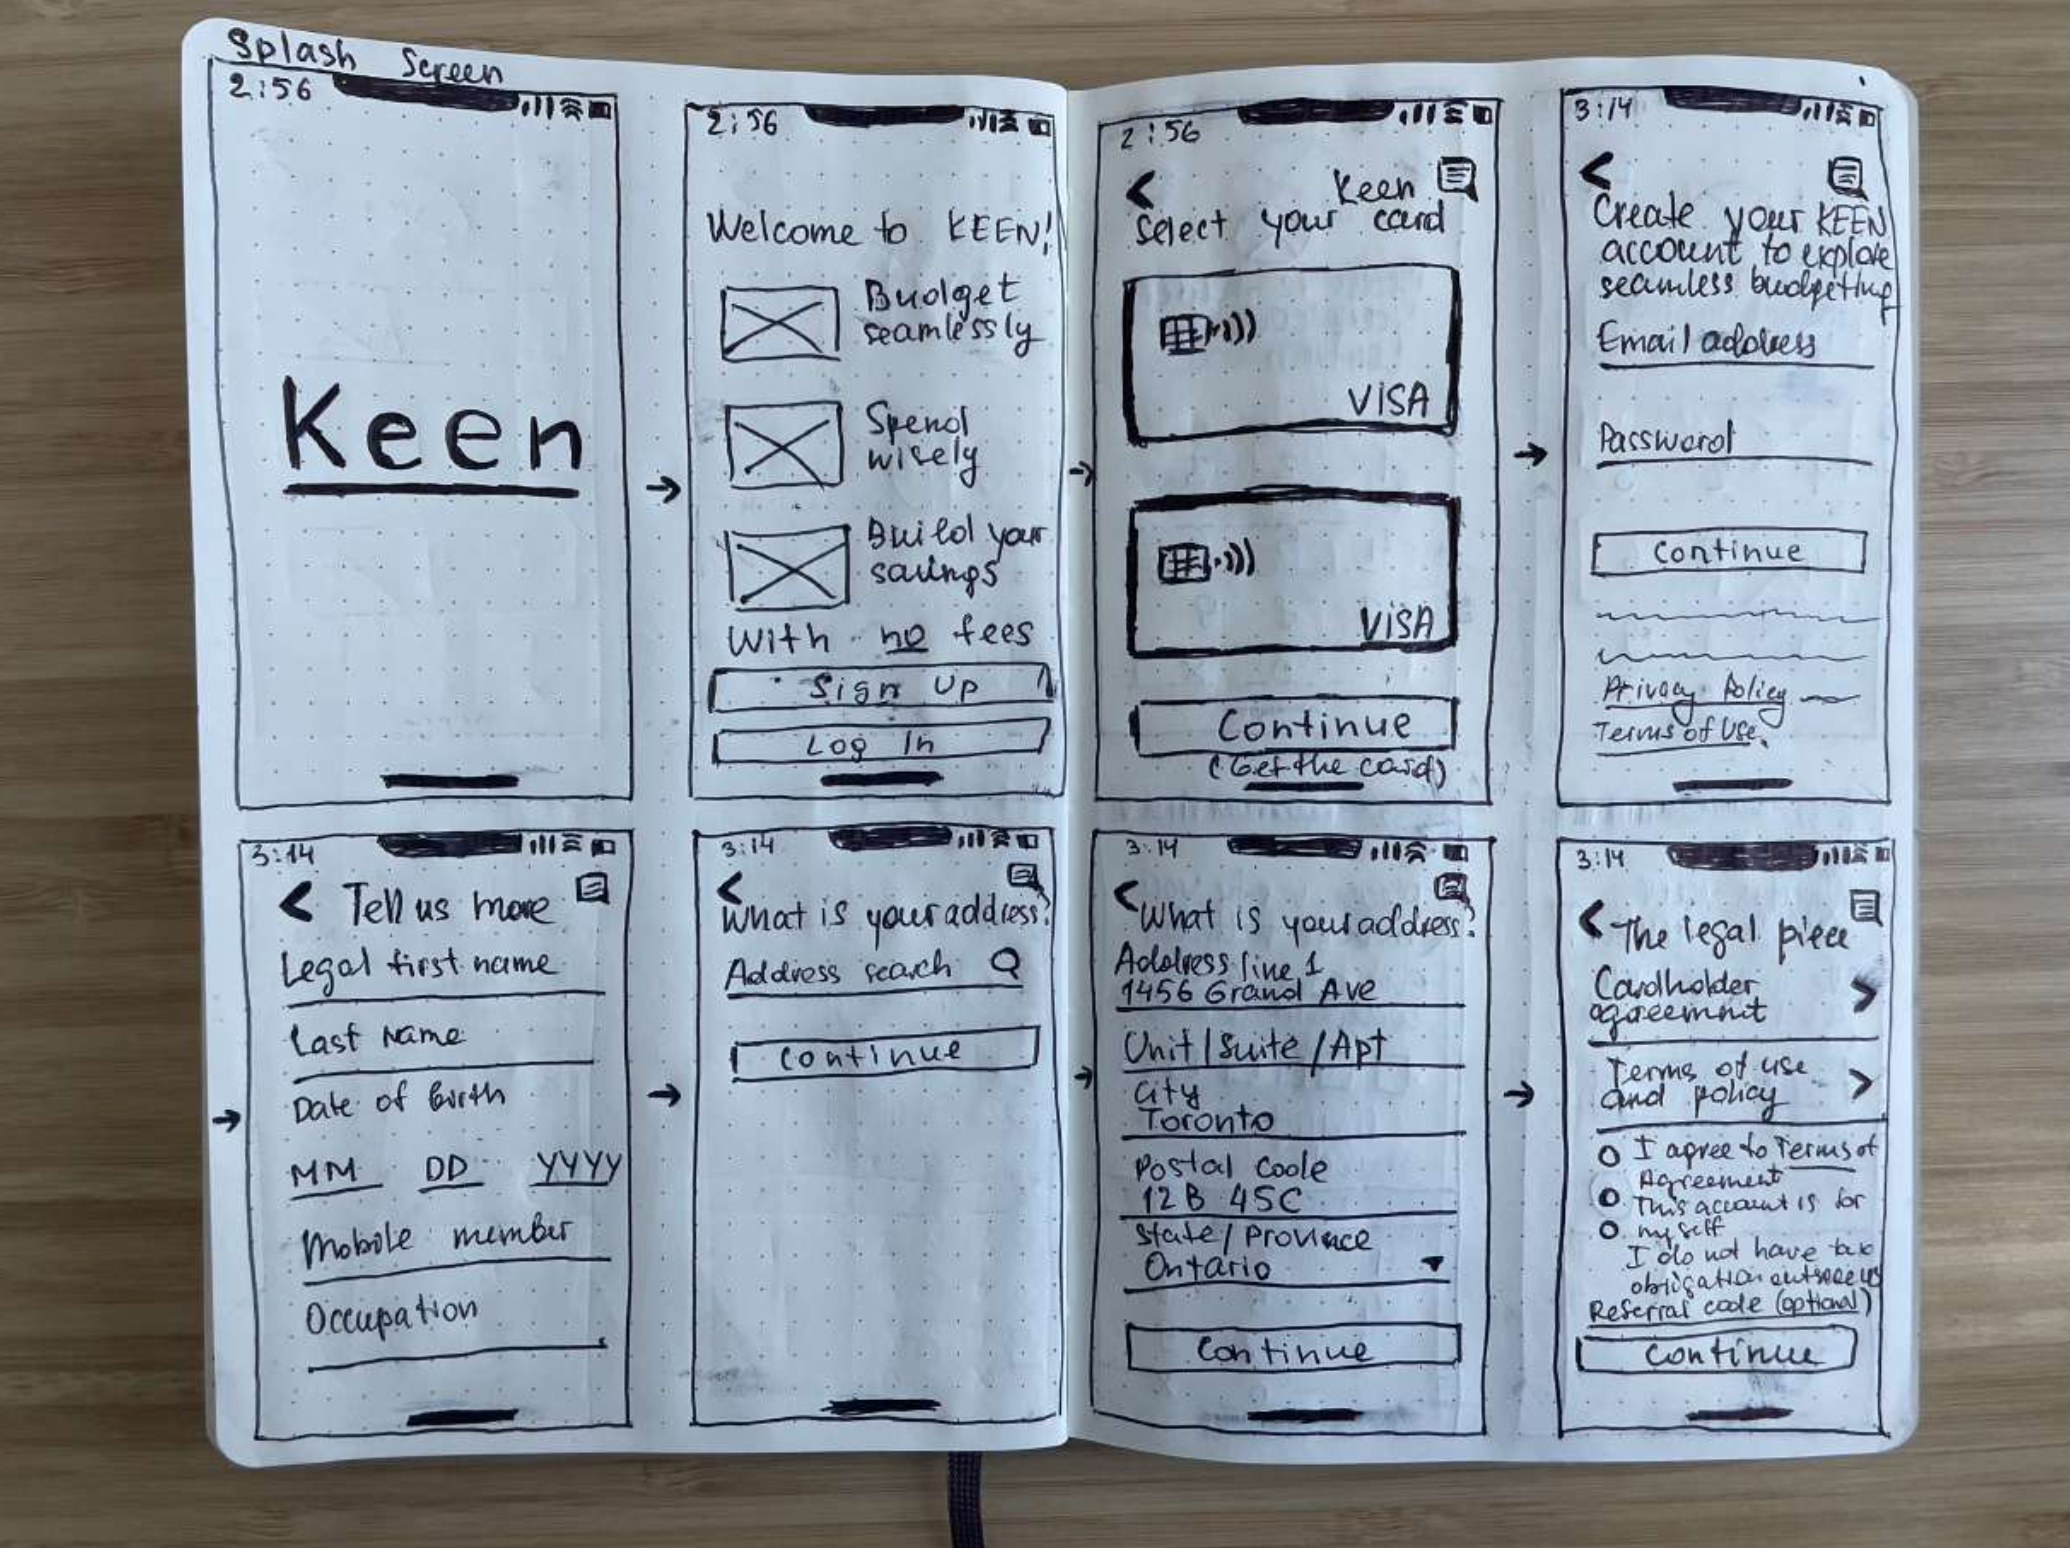 Splash Screen
2:56
Keen
2:56
Welcome to KEEN!
Budget
seamlessly
Spend
wisely
Build your
savings
With no fees
Sign Up
Log In
2:56
Keen
Select your card
VISA
VISA
Continue
(Get the card)
3:14
Create your KEEN
account to explore
seamless budgeting
Email address
Password
Continue
Privacy Policy
Terms of Use
3:14
Tell us more
Legal first name
Last Name
Date of birth
MM DD YYYY
Mobile member
Occupation
3:14
What is your address?
Address search
Continue
3:14
What is your address?
Address line 1
1456 Grand Ave
Unit/Suite/Apt
City
Toronto
Postal Code
12B 45C
State/Province
Ontario
Continue
3:14
The legal piece
Cardholder
agreemnt
Terms of use
and policy
I agree to Terms of
Agreement
This account is for
my self
I do not have tax
obligation
Referral code (optional)
Continue